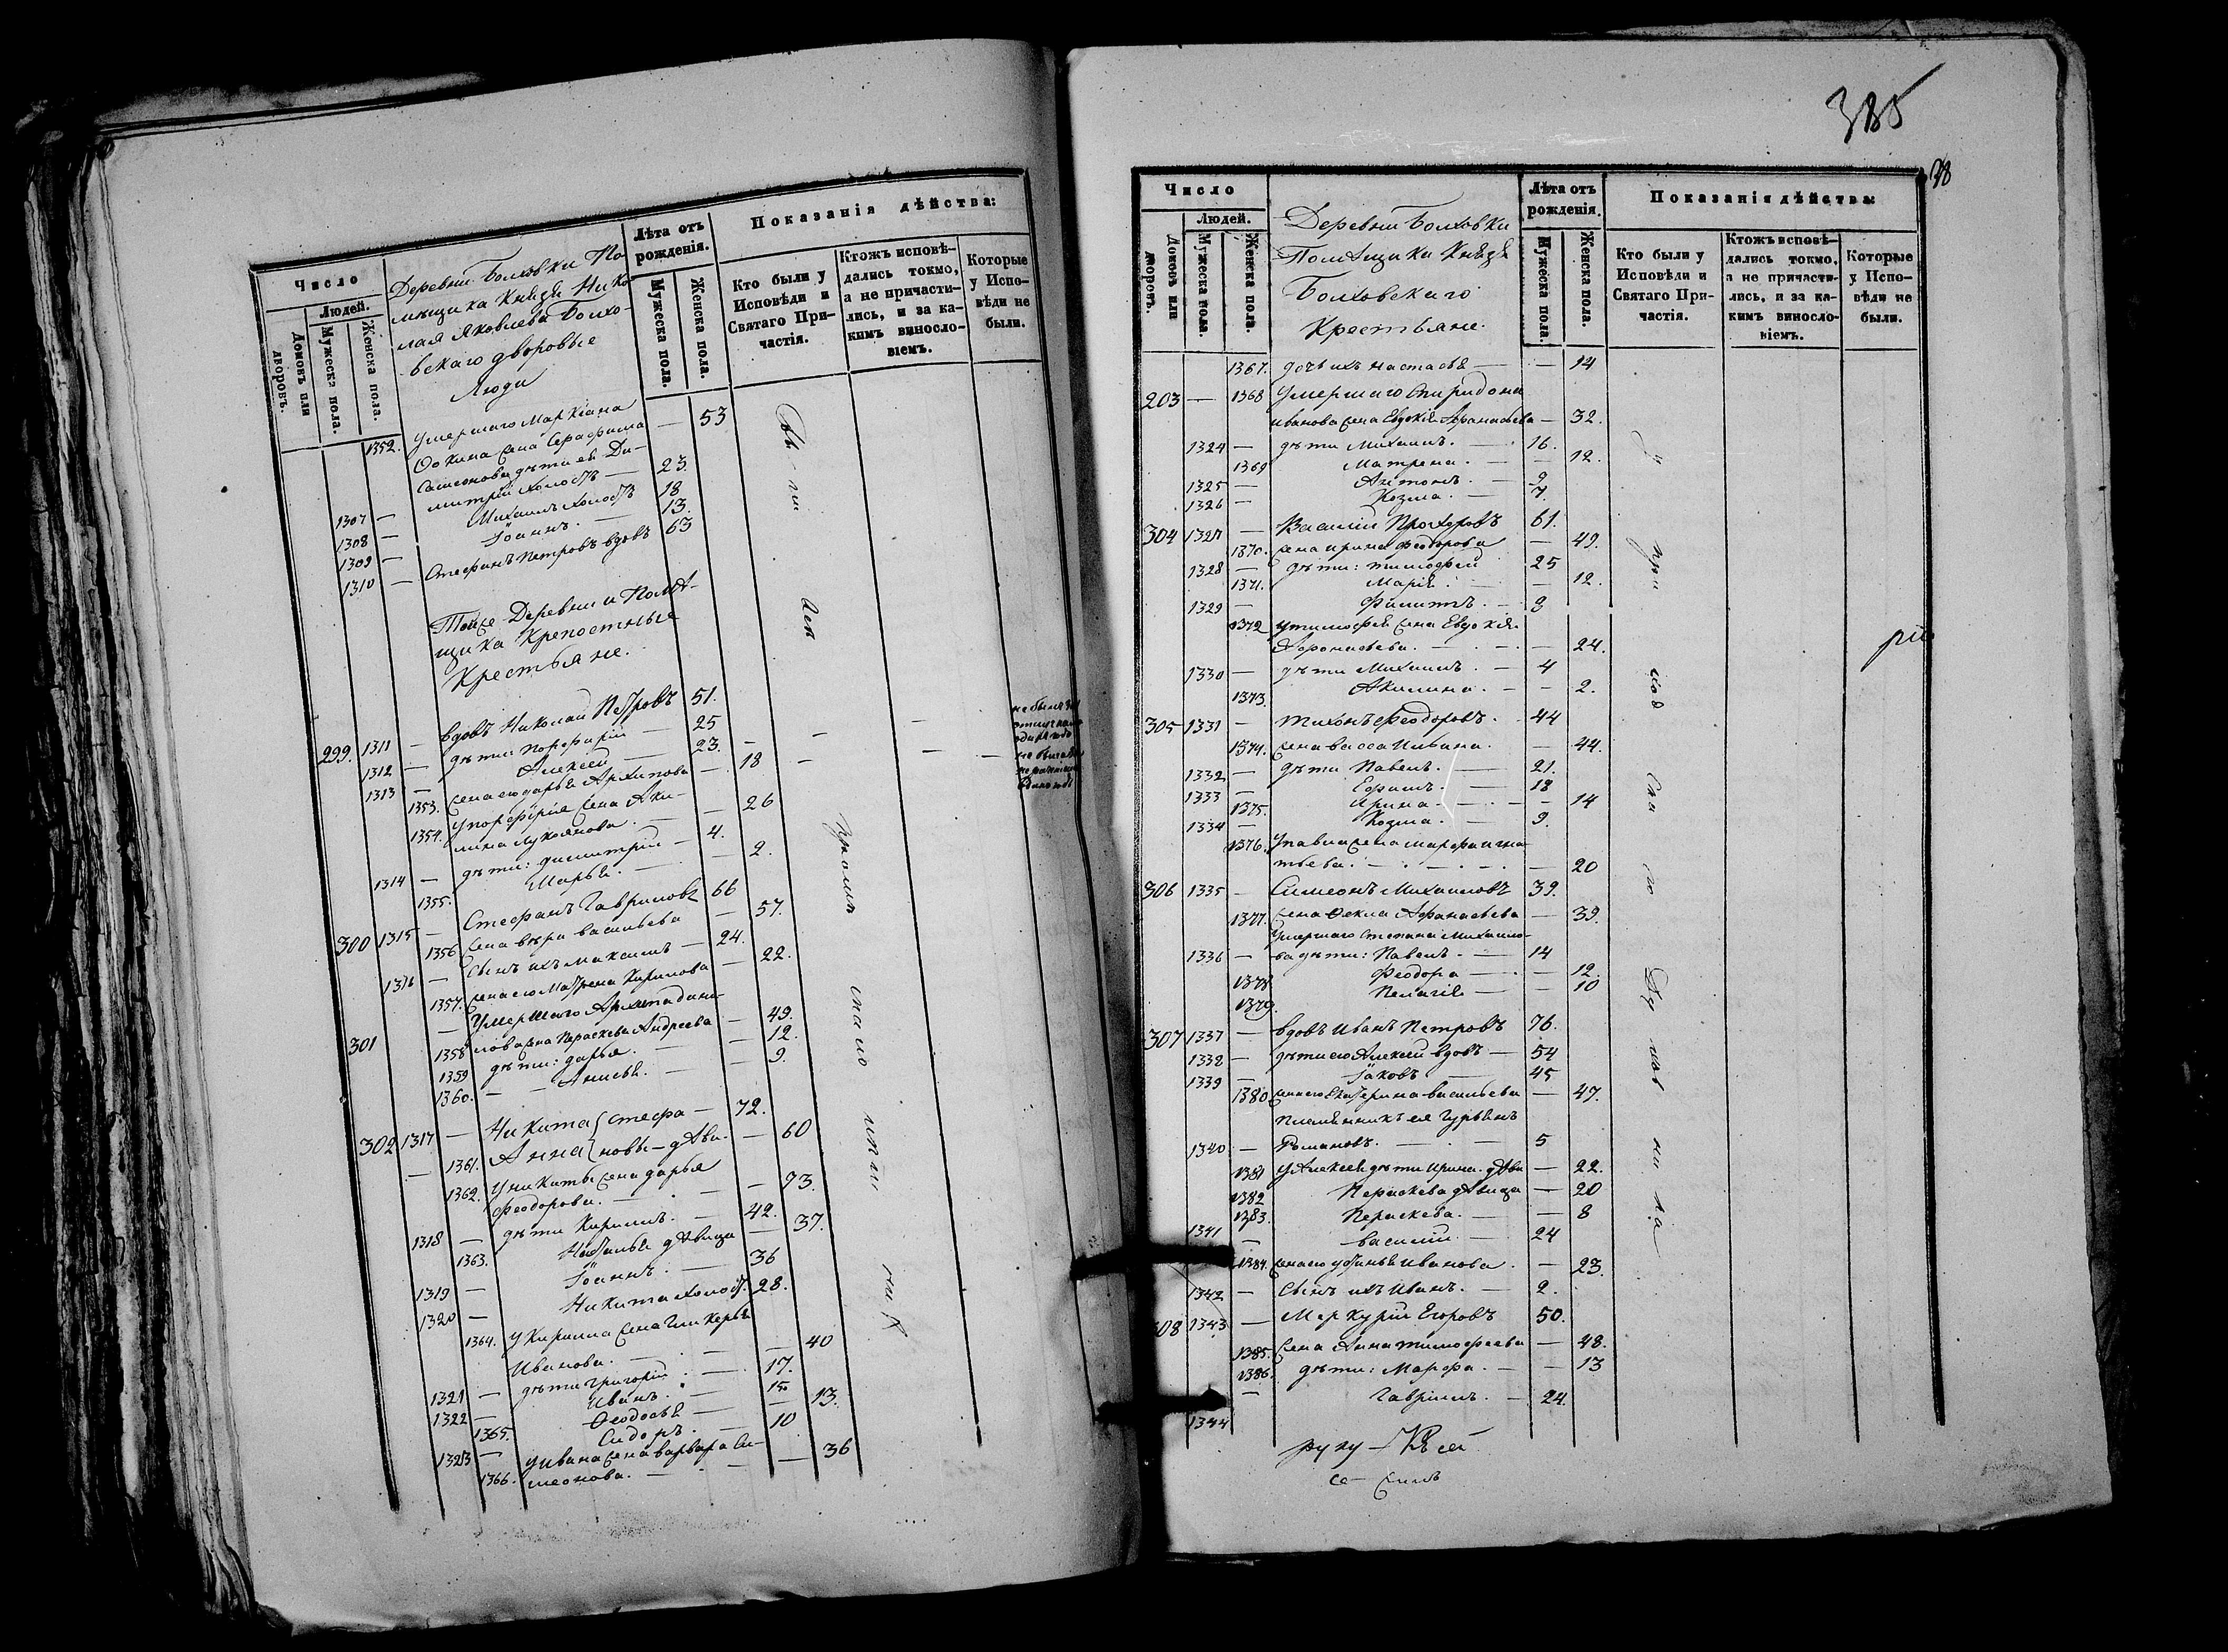 Число
Людей.
Домовъ или дворовъ.
Мужеска пола.
Женска пола.
Деревни Болховки По-
мѣщика Князя Нико-
лая Яковлева Болхо-
вскаго дворовые
Люди
Лѣта отъ рожденія.
Мужеска пола.
Женска пола.
Показанія дѣйства:
Кто были у Исповѣди и Святаго При-частія.
Ктожъ исповѣ-дались токмо, а не причасти-лись, и за ка-кимъ винословіемъ.
Которые у Испо-вѣди не были.
1352. Умершаго Маркіана
жена Серафима — 53
Самсонова дѣти ея Ди-
1307 — митрій холостъ — 23
1308 — Михаилъ холостъ 18
1309 — Іоаннъ. — 13.
1310 — Стефанъ Петровъ вдовъ 63
Тойже Деревни и Помѣ-
щика Крепостные
Крестьяне.
299. 1311 — вдовъ Николай Петровъ 51.
1312 — дѣти Порфирій — 25
1313 — Алексей — 23.
1353. жена его дарья Архипова — 18
1354. у порфирія жена Аки-
лина Лукоянова. — 26
1314 — дѣти: димитрій — 4.
1355. Марья. — 2.
300 1315 — Стефанъ Гавриловъ 66
1356 жена вѣра васильева — 57.
1316 — Сынъ ихъ Максимъ — 24.
1357. жена его Матрена Кирилова — 22.
301 — Умершаго
1358 жена Параскева Андреева — 49.
1359 дѣти: дарья. — 12.
1360. — Анисья. — 9.
302 1317 — Никита Стефа — 72.
1361. Анна новы — дѣви. — 60
1362. У никиты жена дарья
Феодорова. — 73.
1318 — дѣти Кирилъ. — 42.
1363. Наталья дѣвица — 37.
1319 — Іоаннъ. — 36
1320 — Никита холост. 28.
1364. у Кирилла жена Гликерья
Иванова. — 40
1321 — дѣти Григорій. — 17.
1322 — Иванъ. — 15
1365. Феодосья — 13.
1323 — Сидоръ. — 10
1366. у ивана жена варвара Си-
меонова. — 36
385
Число
Людей.
Домовъ или дворовъ.
Мужеска пола.
Женска пола.
Деревни Болховки
Помѣщика Князя
Болховскаго
Крестьяне.
Лѣта отъ рожденія.
Мужеска пола.
Женска пола.
Показанія дѣйства:
Кто были у Исповѣди и Святаго При-частія.
Ктожъ исповѣ-дались токмо, а не причасти-лись, и за ка-кимъ винословіемъ.
Которые у Испо-вѣди не были.
1367. дочь ихъ настасья — 14
203 — 1368 Умершаго Спиридона
иванова жена Евдокія Афанасьева — 32.
1324 — дѣти Михаилъ. — 16.
1369 Матрена. — 12.
1325 — Антонъ. — 9
1326 — Козма. — 7.
304 1327 — Василій Прохоровъ 61.
1370. жена ирина федорова — 49.
1328 — дѣти: тимофей 25
1371. Марія. — 12.
1329 — Филипъ. — 9
1372 у тимофея жена Евдокія
Афонасьева. — 24.
1330 — дѣти Михаилъ. — 4
1373. Акилина. — 2.
305 1331 — тихонъ Феодоровъ. 44
1374. жена васса — 44.
1332 — дѣти Павелъ. — 21.
1333 — Ефимъ. — 18
1375. Ирина. — 14
1334 — Козма. — 9.
1376. У павла жена марфа игна
тьева. — 20
306 1335 — Симеонъ Михаиловъ 39.
1377. жена Фекла Афанасьева — 39.
Умершаго Степана Михаило-
1336 — ва дѣти: Павелъ. — 14
1378 Феодора — 12.
1379. Пелагія — 10
307 1337 — вдовъ Иванъ Петровъ 76.
1338 — дѣти его Алексей вдовъ — 54
1339 — Іаковъ — 45
1380 жена его Екатерина васильева — 47.
племянникъ ея Гурьянъ
1340 — Романовъ. — 5
1381 у Алексея дѣти Ирина дѣви — 22.
1382 Параскева дѣвица — 20
1383. Параскева. — 8
1341 — василій — 24
1384. жена его устинья иванова. — 23.
1342 — Сынъ ихъ Иванъ. — 2.
308 1343 — Меркурій Егоровъ 50.
1385. жена Анна тимофеева — 48.
1386. дѣти: Марфа. — 13
1344 — Гавріилъ. — 24.
руку